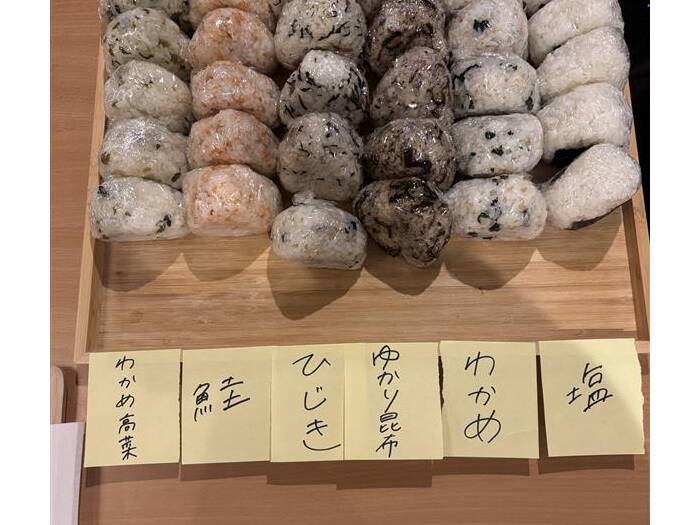 わかめ高菜
鮭
ひじき
ゆかり昆布
わかめ
塩